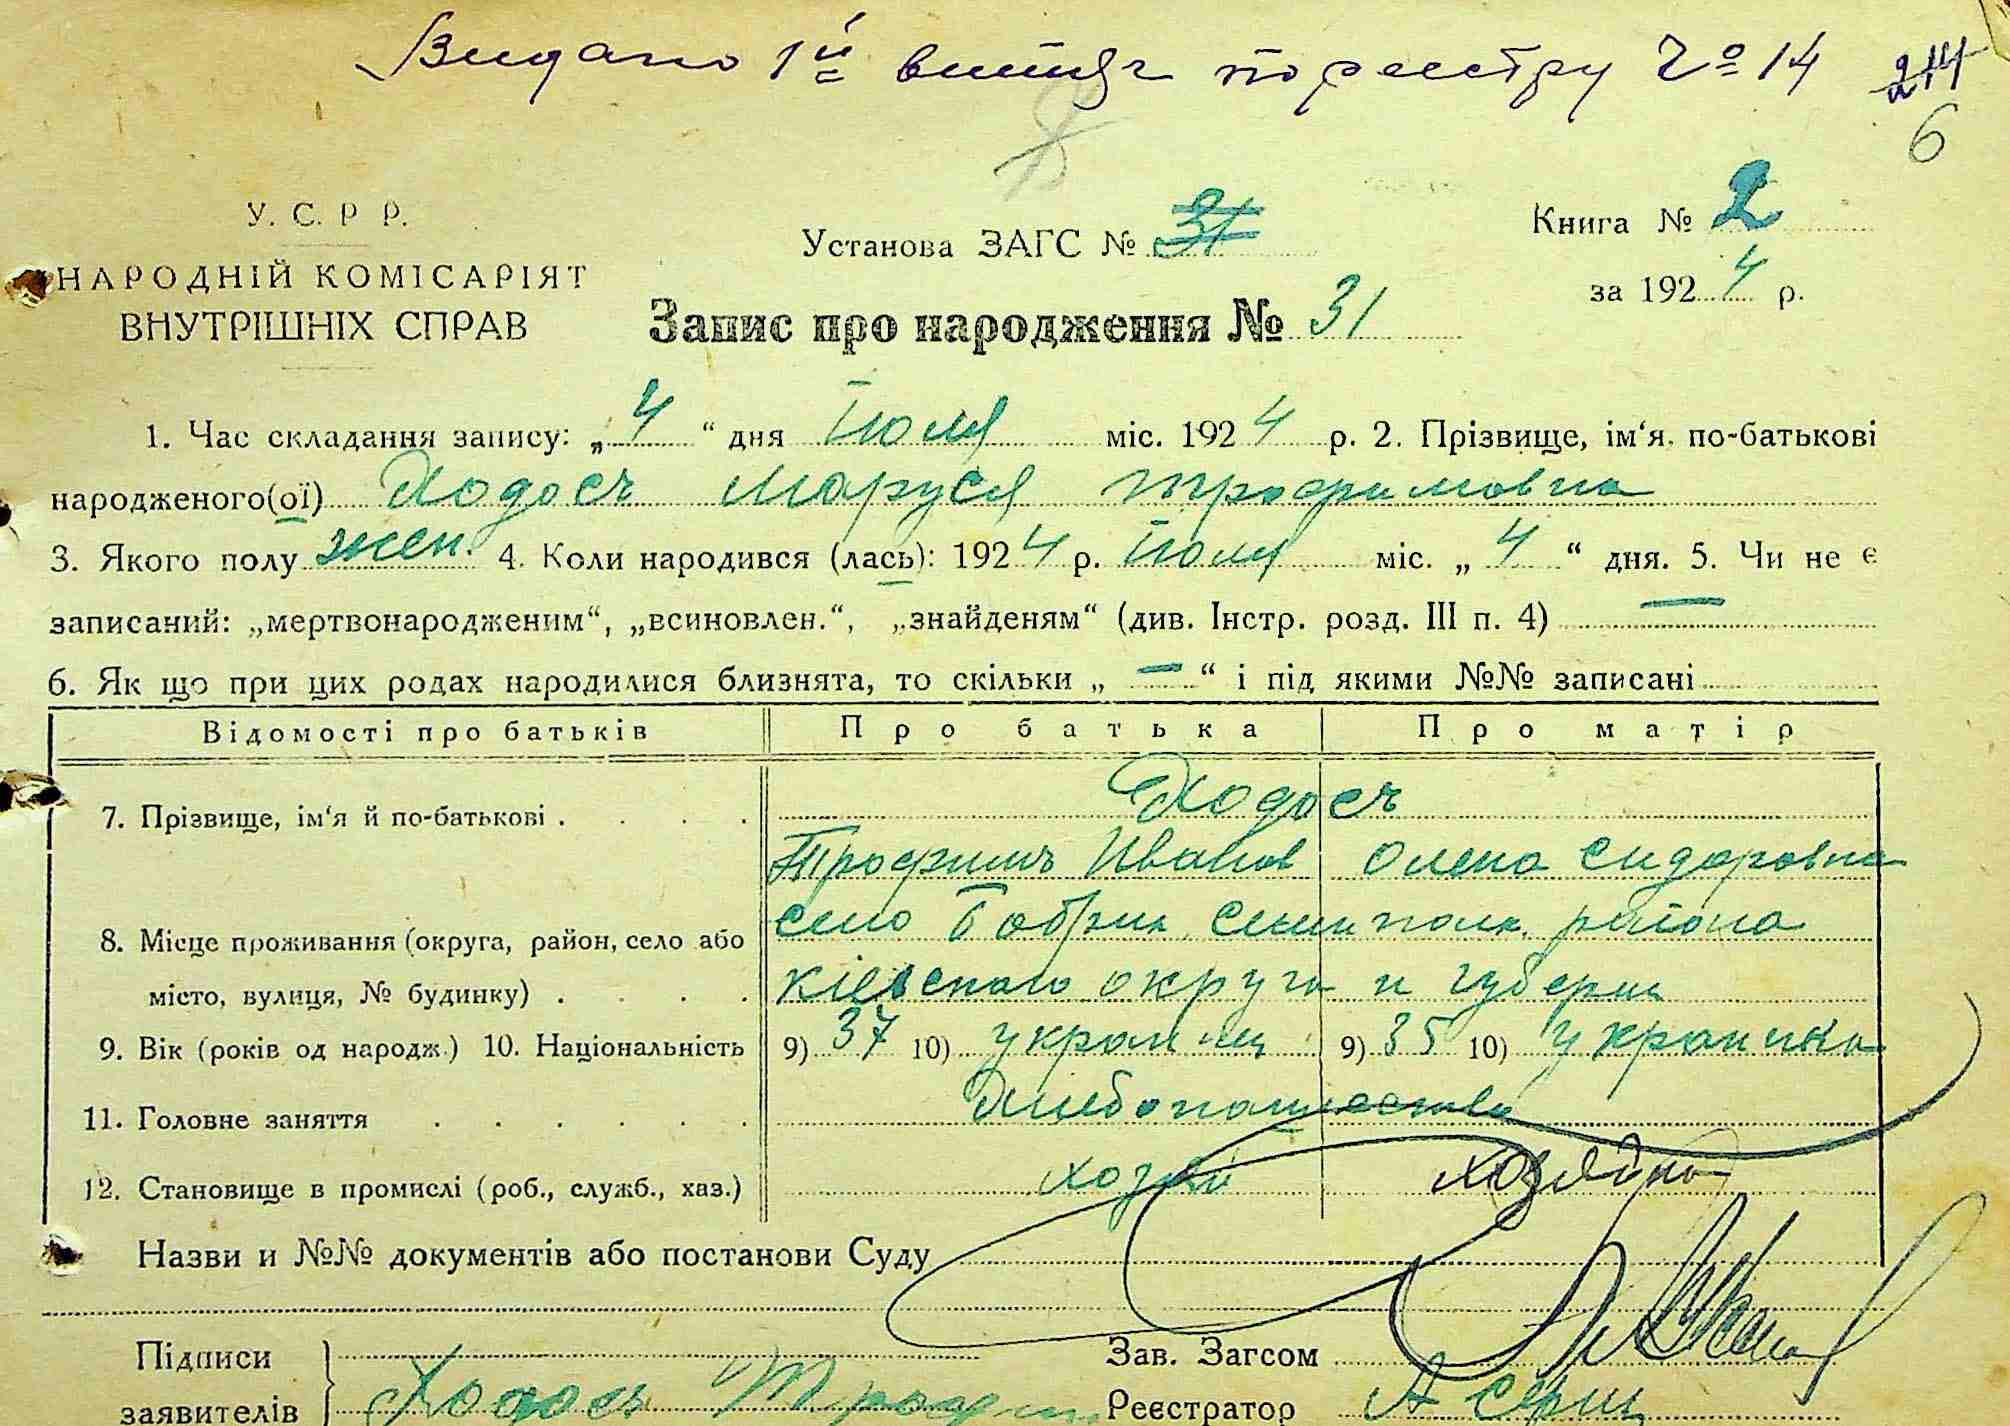 Видано 1й витяг по реестру № 14
214
6
У. С. Р Р.
НАРОДНІЙ КОМІСАРІЯТ
ВНУТРІШНІХ СПРАВ
Установа ЗАГС № 31
Книга № 2
за 1924 р.
Запис про народження № 31
1. Час складання запису: „4“ дня Июля міс. 1924 р. 2. Прізвище, ім‘я, по-батькові
народженого(ої) Ходосъ Маруся Трофимовна
3. Якого полу жен. 4. Коли народився (лась): 1924 р. Июля міс. „4“ дня. 5. Чи не є
записаний: „мертвонародженим“, „всиновлен.“, „знайденям“ (див. Інстр. розд. III п. 4) —
6. Як що при цих родах народилися близнята, то скільки „—“ і під якими №№ записані
Відомості про батьків Про батька Про матір
7. Прізвище, ім‘я й по-батькові . . . . Ходосъ
Трофимъ Иванов Олена Сидоровна
8. Місце проживання (округа, район, село або село Бобрик Семиполк. района
місто, вулиця, № будинку) . . . . Кіевского округа и губерни
9. Вік (років од народж.) 10. Національність 9) 37 10) украинец 9) 35 10) украинка
11. Головне заняття . . . . . . Хлебопашество
12. Становище в промислі (роб., служб., хаз.) хозяйка
Назви и №№ документів або постанови Суду
Підписи
заявителів Ходось Троф
Зав. Загсом
Реєстратор